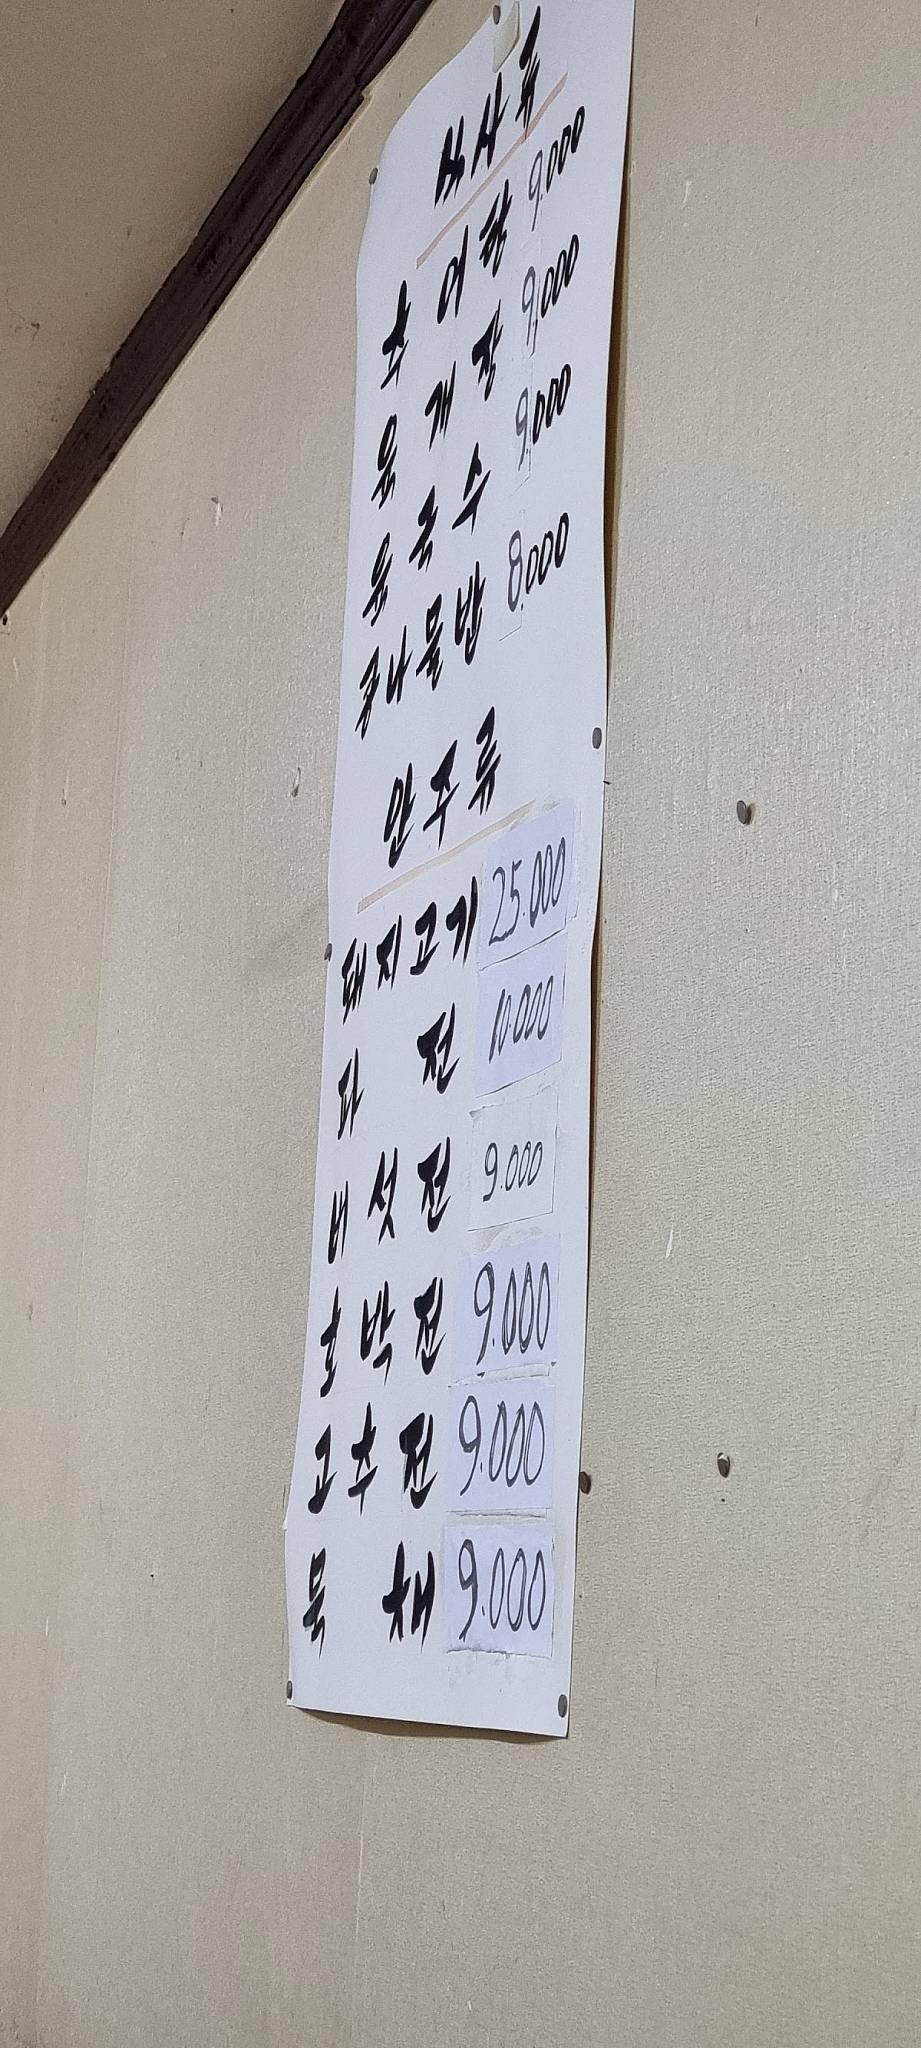 식사류
추어탕 9.000
육개장 9.000
육국수 9.000
콩나물밥 8.000
안주류
돼지고기 25.000
파전 10.000
버섯전 9.000
호박전 9.000
고추전 9.000
묵채 9.000